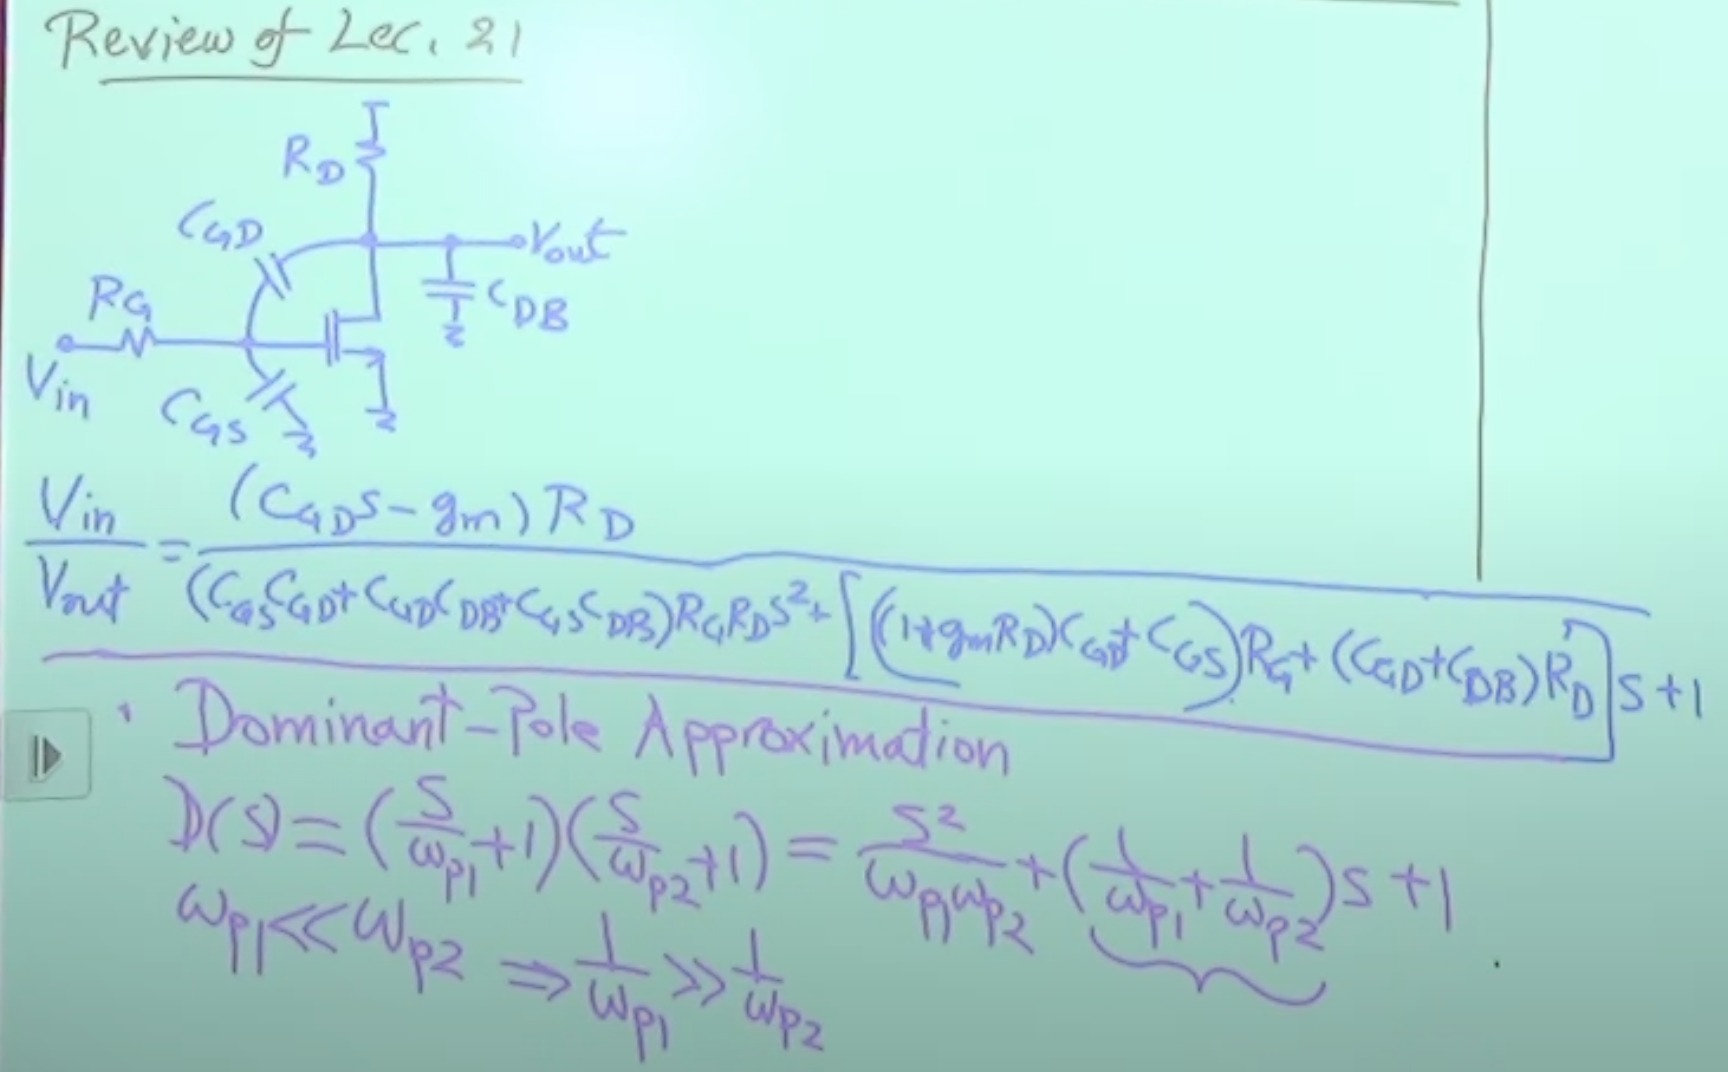 Review of Lec. 21
RD
CGD
Vout
RG
CDB
Vin
CGS
Vin/Vout = (CGDS-gm)RD / (CGSCGD+CGDCDB+CGSCDB)RGRDS²+[((1+gmRD)CGD+CGS)RG+(CGD+CDB)RD]S+1
· Dominant-Pole Approximation
D(S)=(S/ωp1+1)(S/ωp2+1)=S²/ωp1ωp2+(1/ωp1+1/ωp2)S+1
ωp1<<ωp2 ⇒ 1/ωp1 >> 1/ωp2